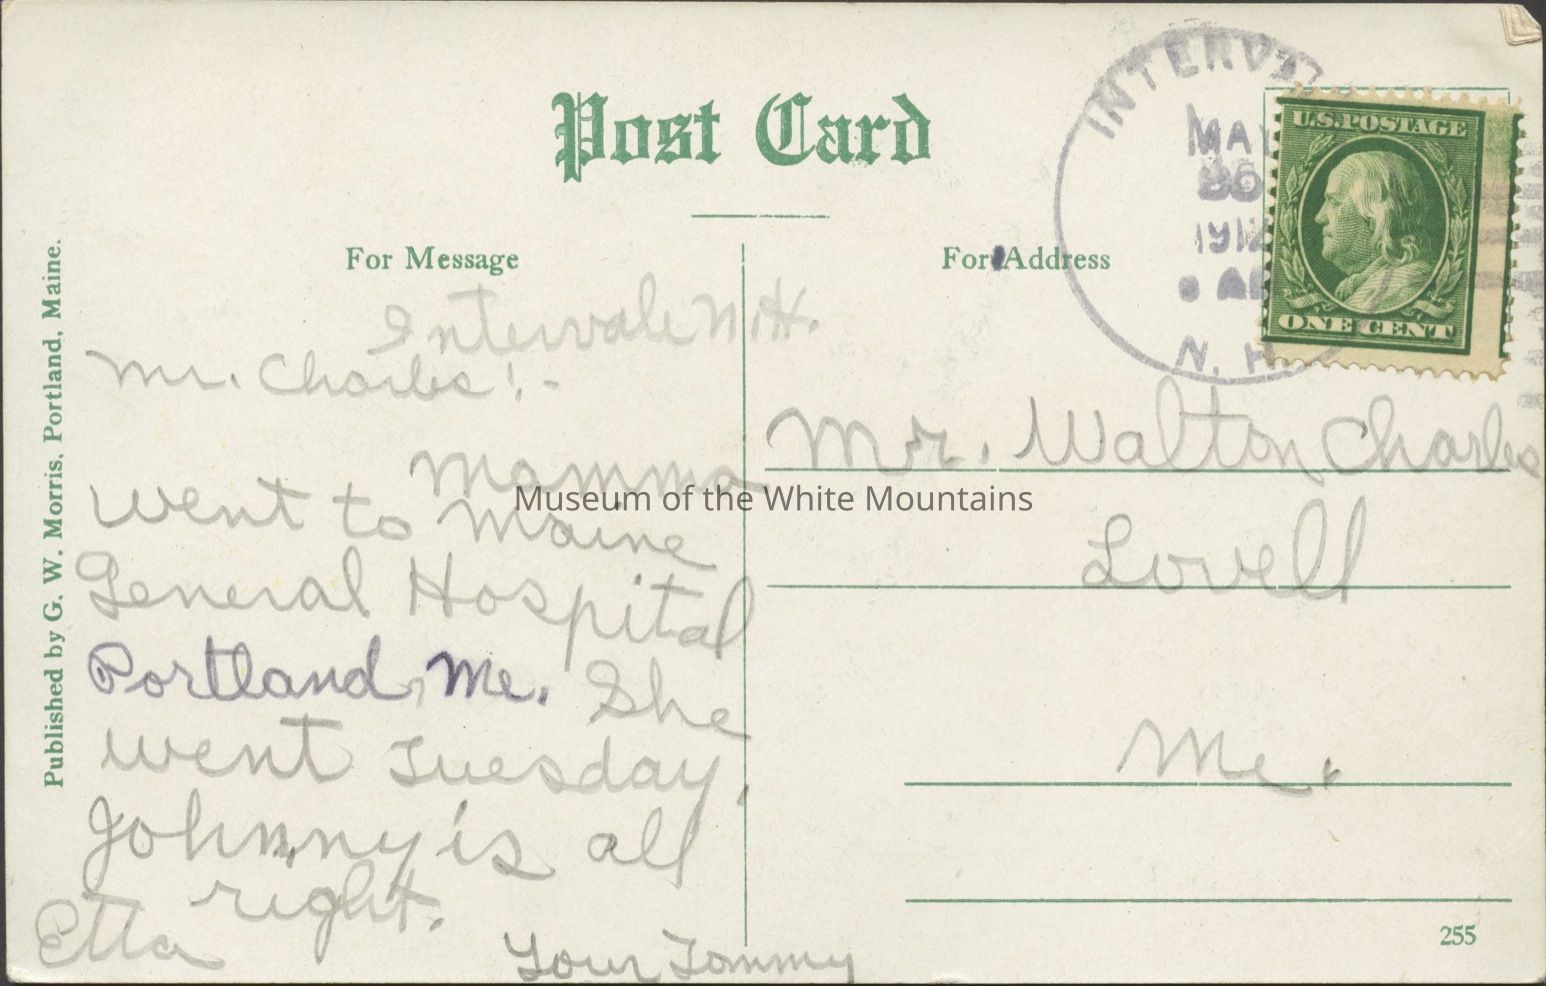 Post Card
For Message
For Address
INTERVA
MAY
26
1912
N. H.
U.S. POSTAGE
ONE CENT
Published by G. W. Morris, Portland, Maine.
Intervale N.H.
Mr. Charles! -
Mamma
went to Maine
General Hospital
Portland, Me. She
went Tuesday.
Johnny is all
right.
Etta
Your Tommy
Mr. Walton Charles
Lovell
Me.
255
Museum of the White Mountains